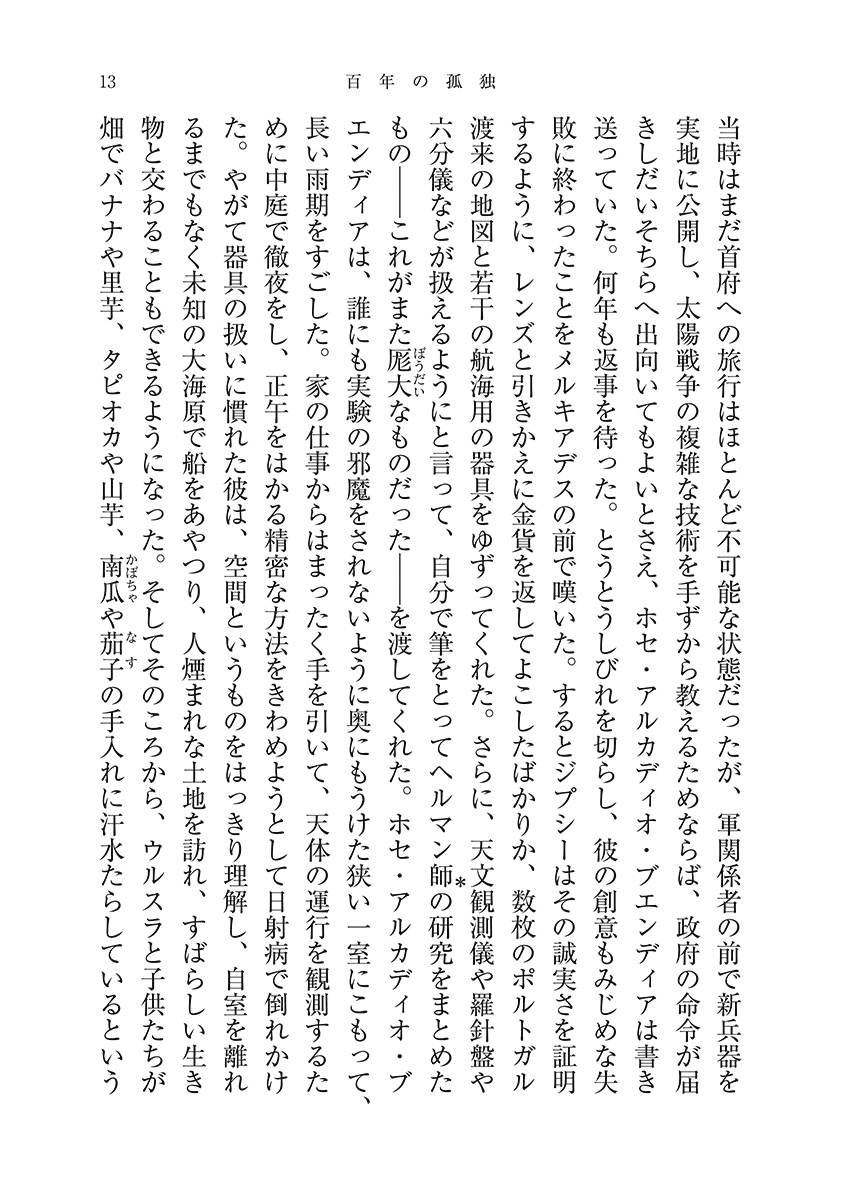 13
百年の孤独
当時はまだ首府への旅行はほとんど不可能な状態だったが、軍関係者の前で新兵器を
実地に公開し、太陽戦争の複雑な技術を手ずから教えるためならば、政府の命令が届
きしだいそちらへ出向いてもよいとさえ、ホセ・アルカディオ・ブエンディアは書き
送っていた。何年も返事を待った。とうとうしびれを切らし、彼の創意もみじめな失
敗に終わったことをメルキアデスの前で嘆いた。するとジプシーはその誠実さを証明
するように、レンズと引きかえに金貨を返してよこしたばかりか、数枚のポルトガル
渡来の地図と若干の航海用の器具をゆずってくれた。さらに、天文観測儀や羅針盤や
六分儀などが扱えるようにと言って、自分で筆をとってヘルマン師*の研究をまとめた
もの――これがまた厖大ぼうだいなものだった――を渡してくれた。ホセ・アルカディオ・ブ
エンディアは、誰にも実験の邪魔をされないように奥にもうけた狭い一室にこもって、
長い雨期をすごした。家の仕事からはまったく手を引いて、天体の運行を観測するた
めに中庭で徹夜をし、正午をはかる精密な方法をきわめようとして日射病で倒れかけ
た。やがて器具の扱いに慣れた彼は、空間というものをはっきり理解し、自室を離れ
るまでもなく未知の大海原で船をあやつり、人煙まれな土地を訪れ、すばらしい生き
物と交わることもできるようになった。そしてそのころから、ウルスラと子供たちが
畑でバナナや里芋、タピオカや山芋、南瓜かぼちゃや茄子なすの手入れに汗水たらしているという